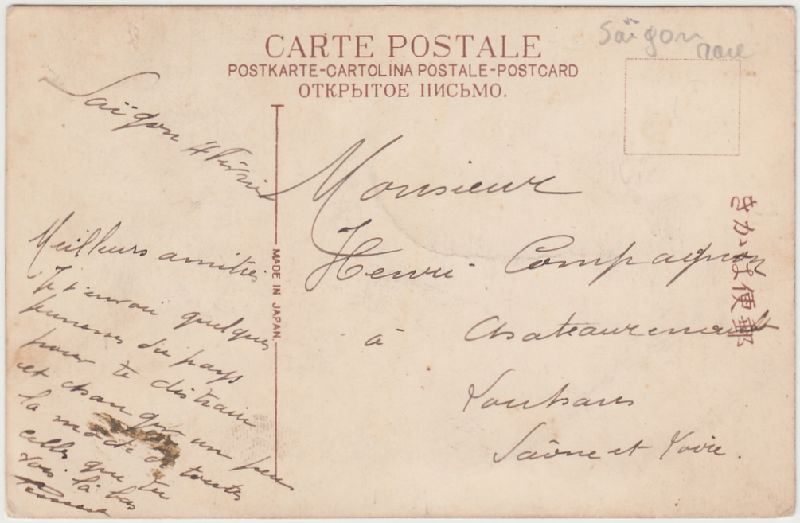 CARTE POSTALE
POSTKARTE-CARTOLINA POSTALE-POSTCARD
ОТКРЫТОЕ ПИСЬМО.
Saïgon
rare
Saïgon 4
Meilleurs amitiés
Je t'envoi quelques
du pays
pour te distraire
et changer un peu
la mode de toutes
celles que tu
vois là bas
MADE IN JAPAN.
Monsieur
Henri Compagnon
à Chateaurenaud
Louhans
Saône et Loire.
きかは便郵